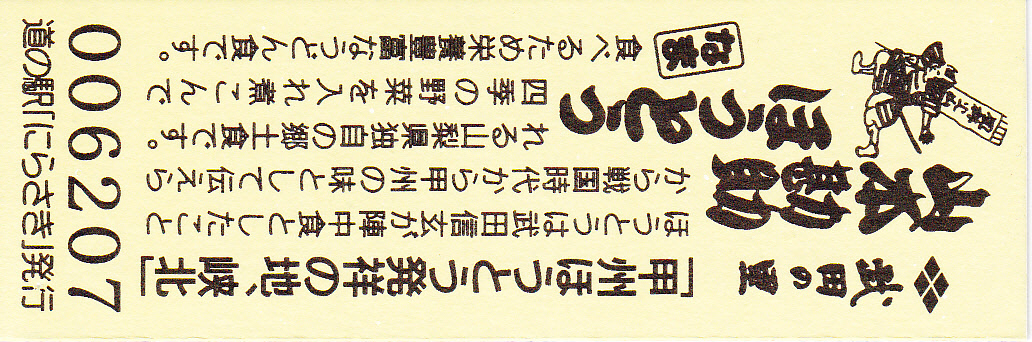 武田の里
山本勘助
ほうとう
なま
「甲州ほうとう発祥の地、峡北」
ほうとうは武田信玄が陣中食としたこと
から戦国時代から甲州の味として伝えら
れる山梨県独自の郷土食です。
四季の野菜を入れ煮こんで
食べるため栄養豊富なうどん食です。
006207
道の駅「にらさき」発行